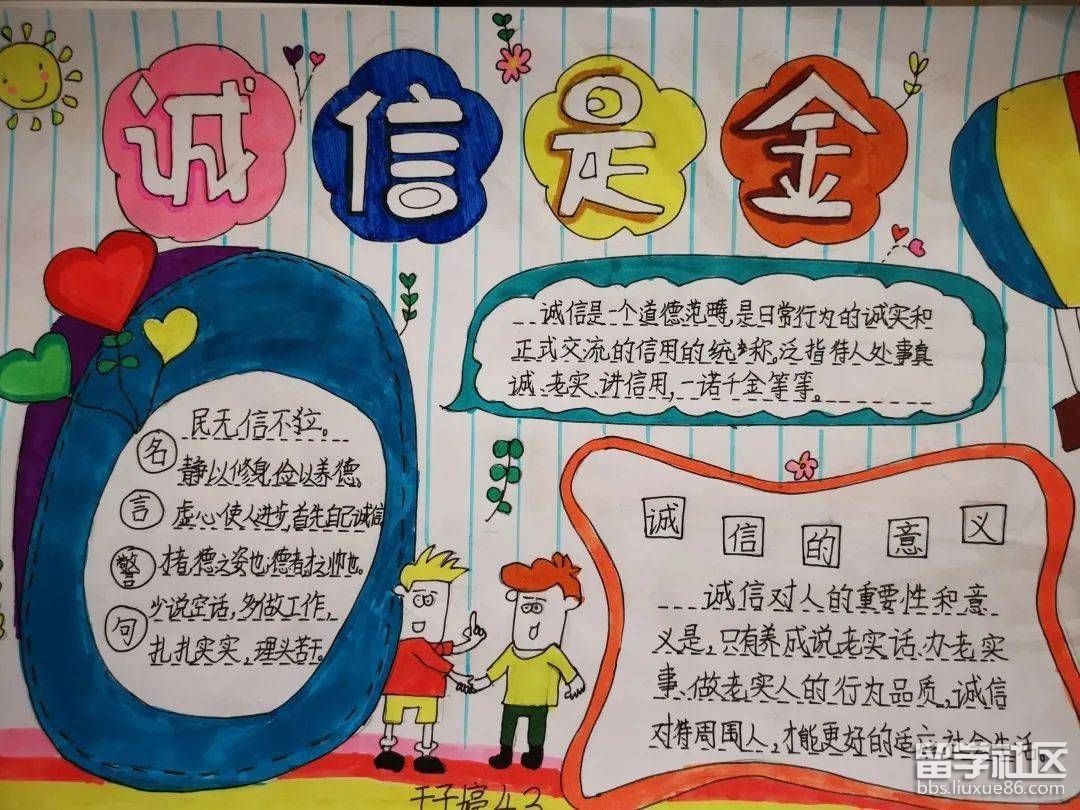 诚信是金
诚信是一个道德范畴,是日常行为的诚实和
正式交流的信用的统称,泛指待人处事真
诚、老实、进信用,一诺千金等等。
名言警句
民无信不立。
静以修身,俭以养德,
虚心使人进步,首先自己诚信
才者,德之资也;德者,才之帅也。
少说空话,多做工作,
扎扎实实,埋头苦干。
诚信的意义
诚信对人的重要性和意
义是,只有养成说老实话、办老实
事、做老实人的行为品质,诚信
对待周围人,才能更好的适应社会生活。
4.3
留学社区
bbs.liuxue86.com